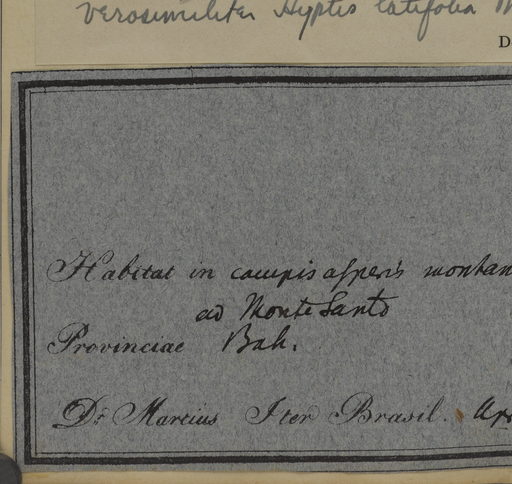 verosimiliter Hyptis latifolia M
D
Habitat in campis asperis montan
ad Monte Santo
Provinciae Bah.
Dr. Martius Iter Brasil. Apr